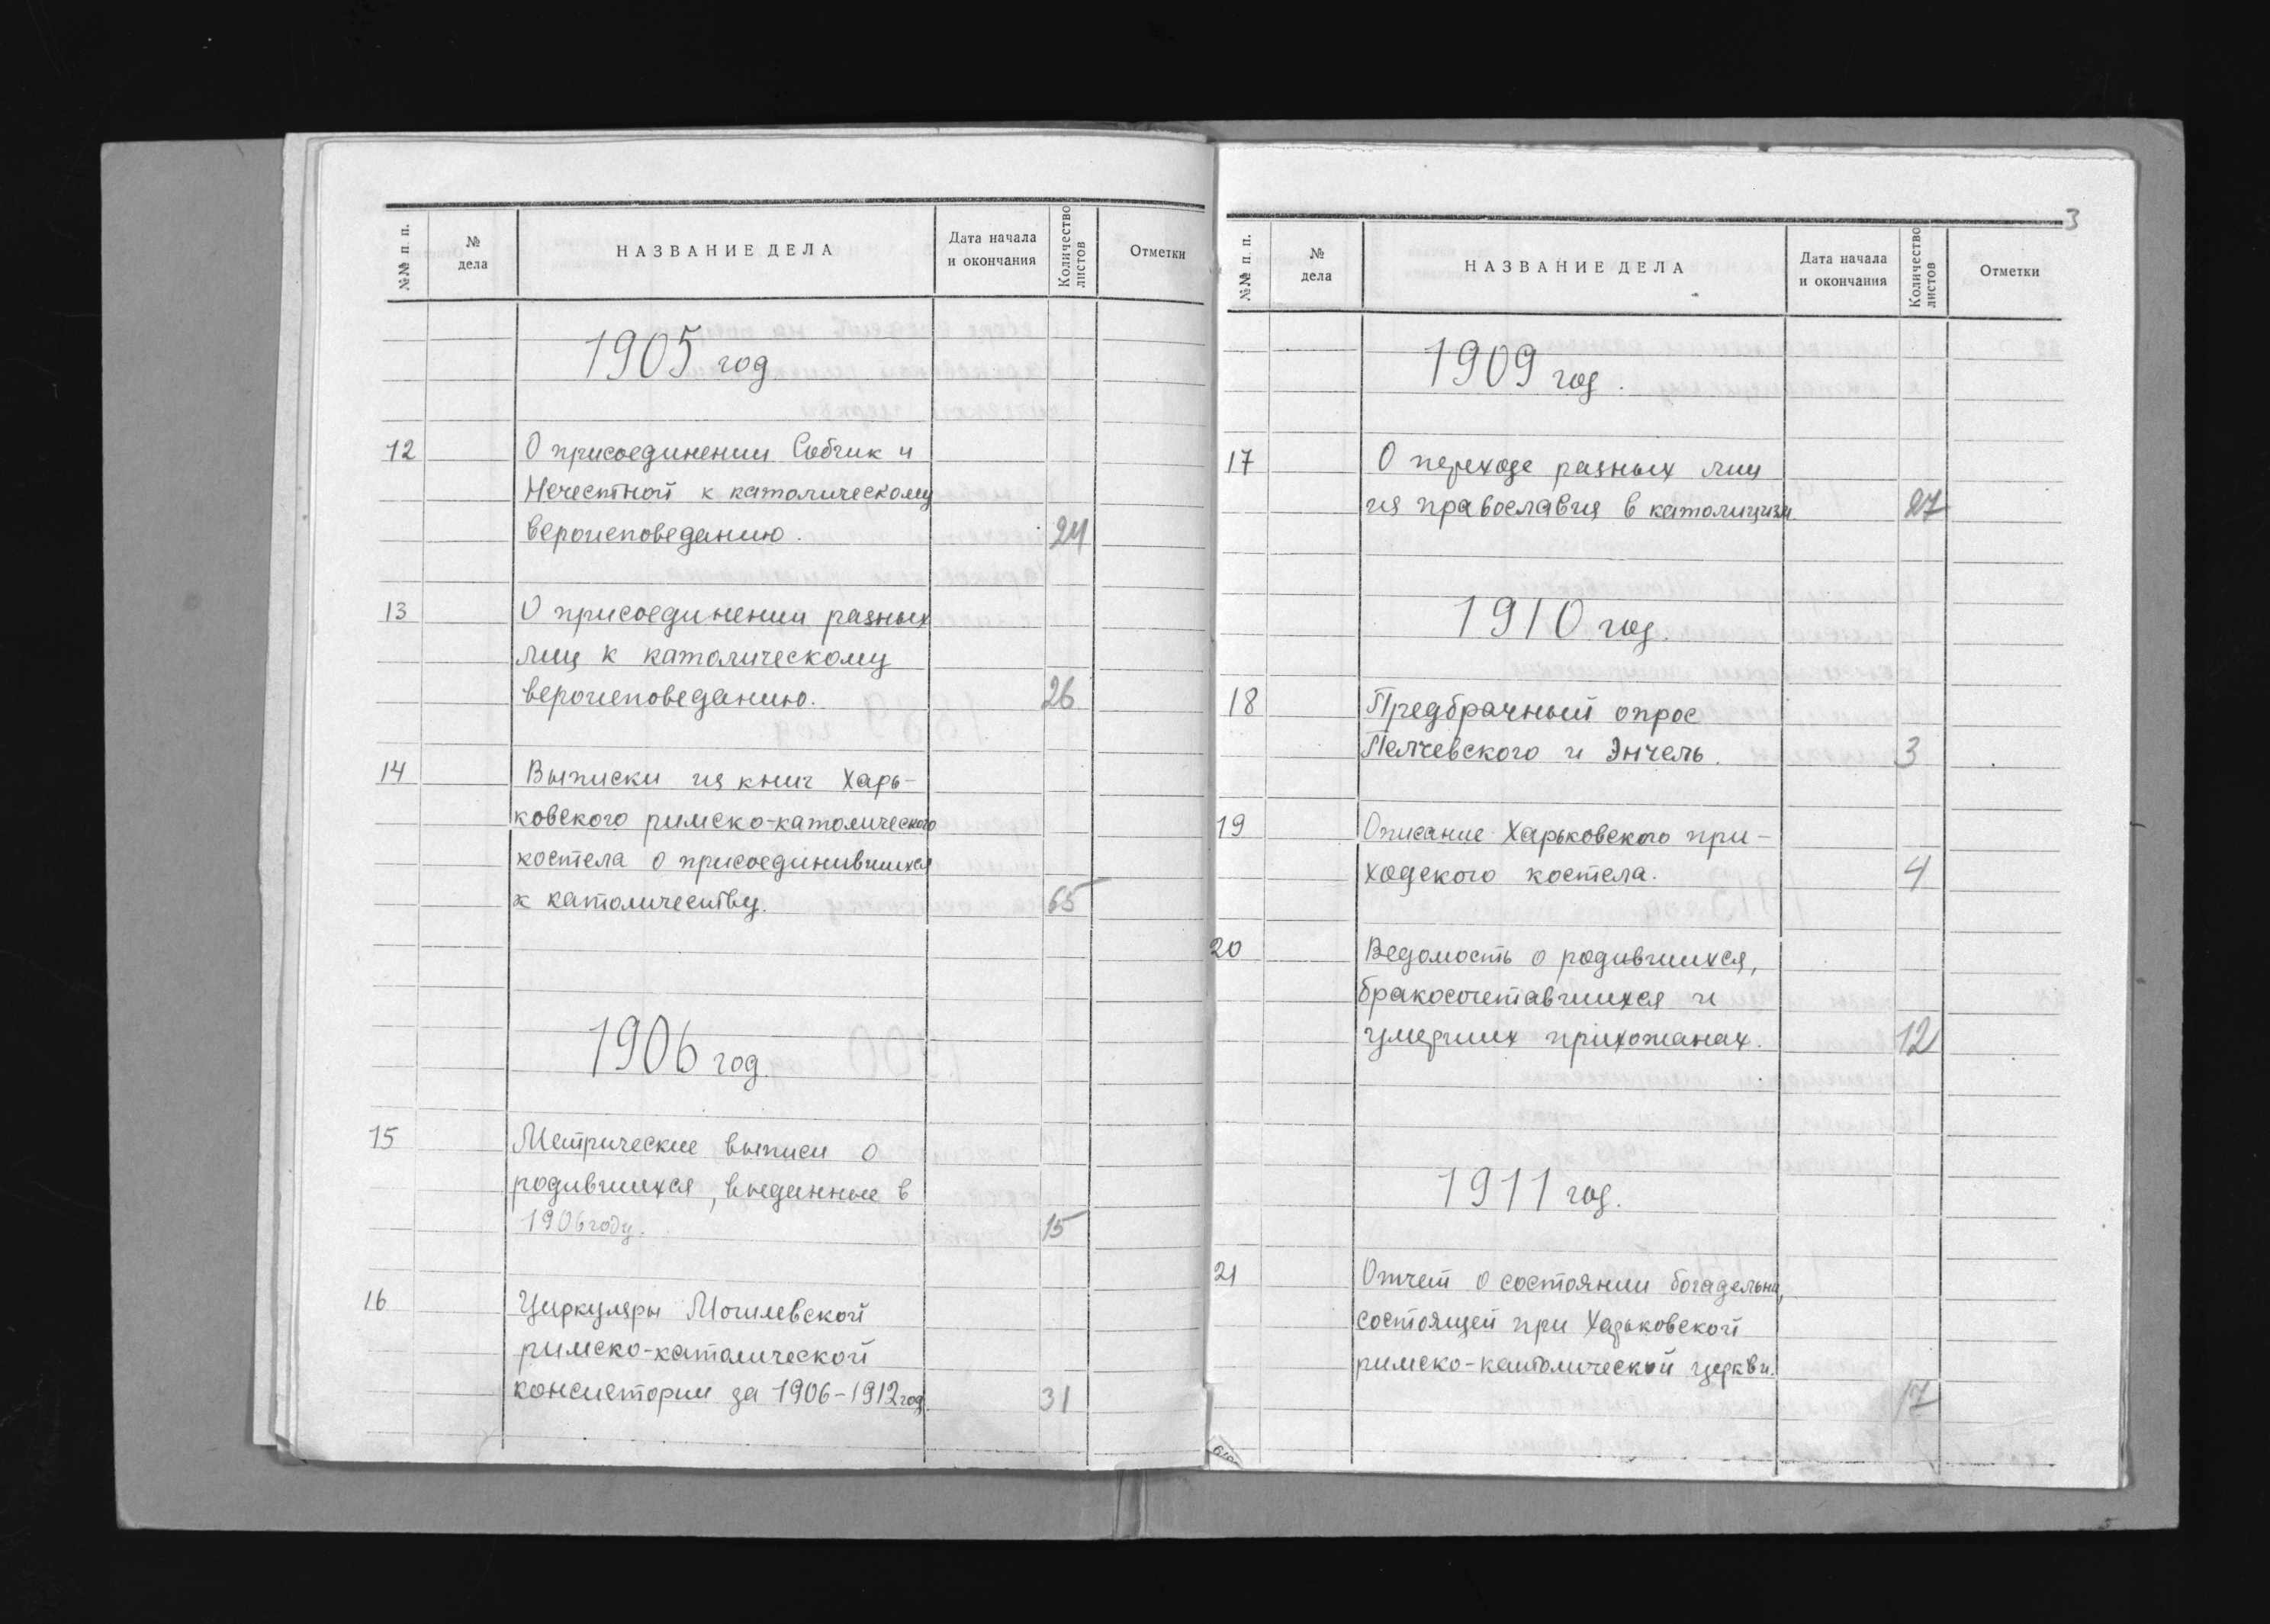 №№ п. п.
№ дела
НАЗВАНИЕ ДЕЛА
Дата начала и окончания
Количество листов
Отметки
1905 год
12 О присоединении Собчик и
Нечестной к католическому
вероисповеданию. 24
13 О присоединении разных
лиц к католическому
вероисповеданию. 26
14 Выписки из книг Харь-
ковского римско-католического
костела о присоединившихся
к католичеству. 65
1906 год.
15 Метрические выписи о
родившихся, выданные в
1906 году. 15
16 Циркуляры Могилевской
римско-католической
консистории за 1906-1912 год. 31
3
№№ п. п.
№ дела
НАЗВАНИЕ ДЕЛА
Дата начала и окончания
Количество листов
Отметки
1909 год.
17 О переходе разных лиц
из православия в католицизм. 27
1910 год.
18 Предбрачный опрос
Пелчевского и Энгель. 3
19 Описание Харьковского при-
ходского костела. 4
20 Ведомость о родившихся,
бракосочетавшихся и
умерших прихожанах. 12
1911 год.
21 Отчет о состоянии богадельни,
состоящей при Харьковской
римско-католической церкви.
17